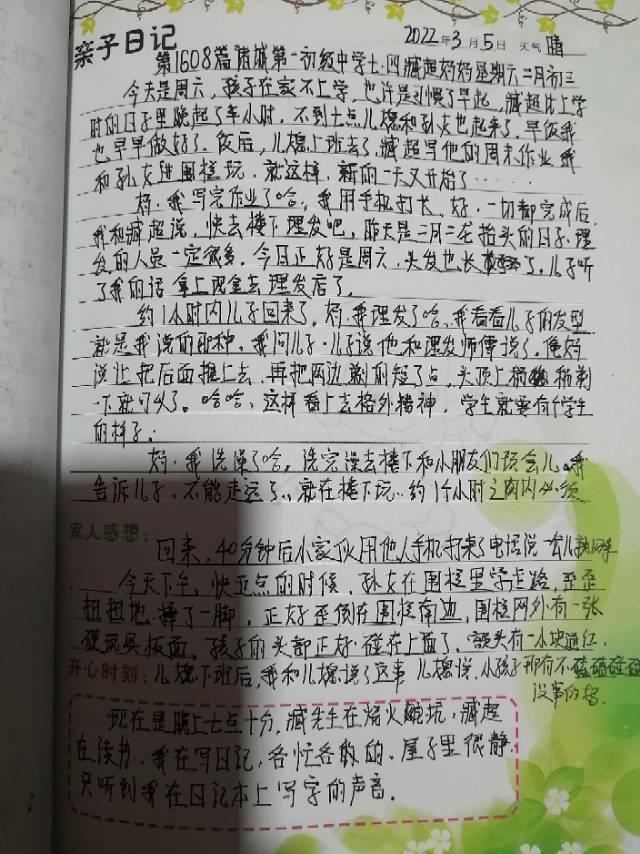 亲子日记
2022年3月5日 天气 晴
第1608篇诸城第一初级中学七.四臧超妈妈星期六二月初三
今天是周六，孩子在家不上学，也许是习惯了早起，臧超比上学
时的日子里晚起了半小时，不到七点儿媳和孙女也起来了，早饭我
也早早做好了。饭后，儿媳上班去了，臧超写他的周末作业，我
和孙女进围栏玩，就这样，新的一天又开始了……
妈，我写完作业了哈，我用手机打卡，好，一切都完成后，
我和臧超说，快去楼下理发吧，昨天是二月二龙抬头的日子，理
发的人员一定很多，今日正好是周六，头发也长了，儿子听
了我的话拿上现金去理发店了。
约1小时内儿子回来了，妈，我理发了哈，我看看儿子的发型
就是我说的那种，我问儿子，儿子说他和理发师傅说了，俺妈
说让把后面推上去，再把两边剃的短了点，头顶上稍稍剃
一下就可以了。哈哈，这样看上去格外精神，学生就要有个学生
的样子；
妈，我洗澡了哈，洗完澡去楼下和小朋友们玩会儿，我
告诉儿子，不能走远了，就在楼下玩，约1个小时之内必须
家人感想：
回来，40分钟后小家伙用他人手机打来了电话说一会儿就回来
今天下午，快五点的时候，孙女在围栏里学走路，歪歪
扭扭地摔了一脚，正好歪倒在围栏南边，围栏网外有一张
硬玩具板面，孩子的头部正好碰在上面了，额头有一小块通红，
开心时刻：儿媳下班后，我和儿媳说了这事 儿媳说，小孩子那有不磕磕碰碰
没事的妈
现在是晚上七点十分，臧先生在烧火碗坑，臧超
在读书，我在写日记，各忙各敢的，屋子里很静
只听到我在日记本上写字的声音．